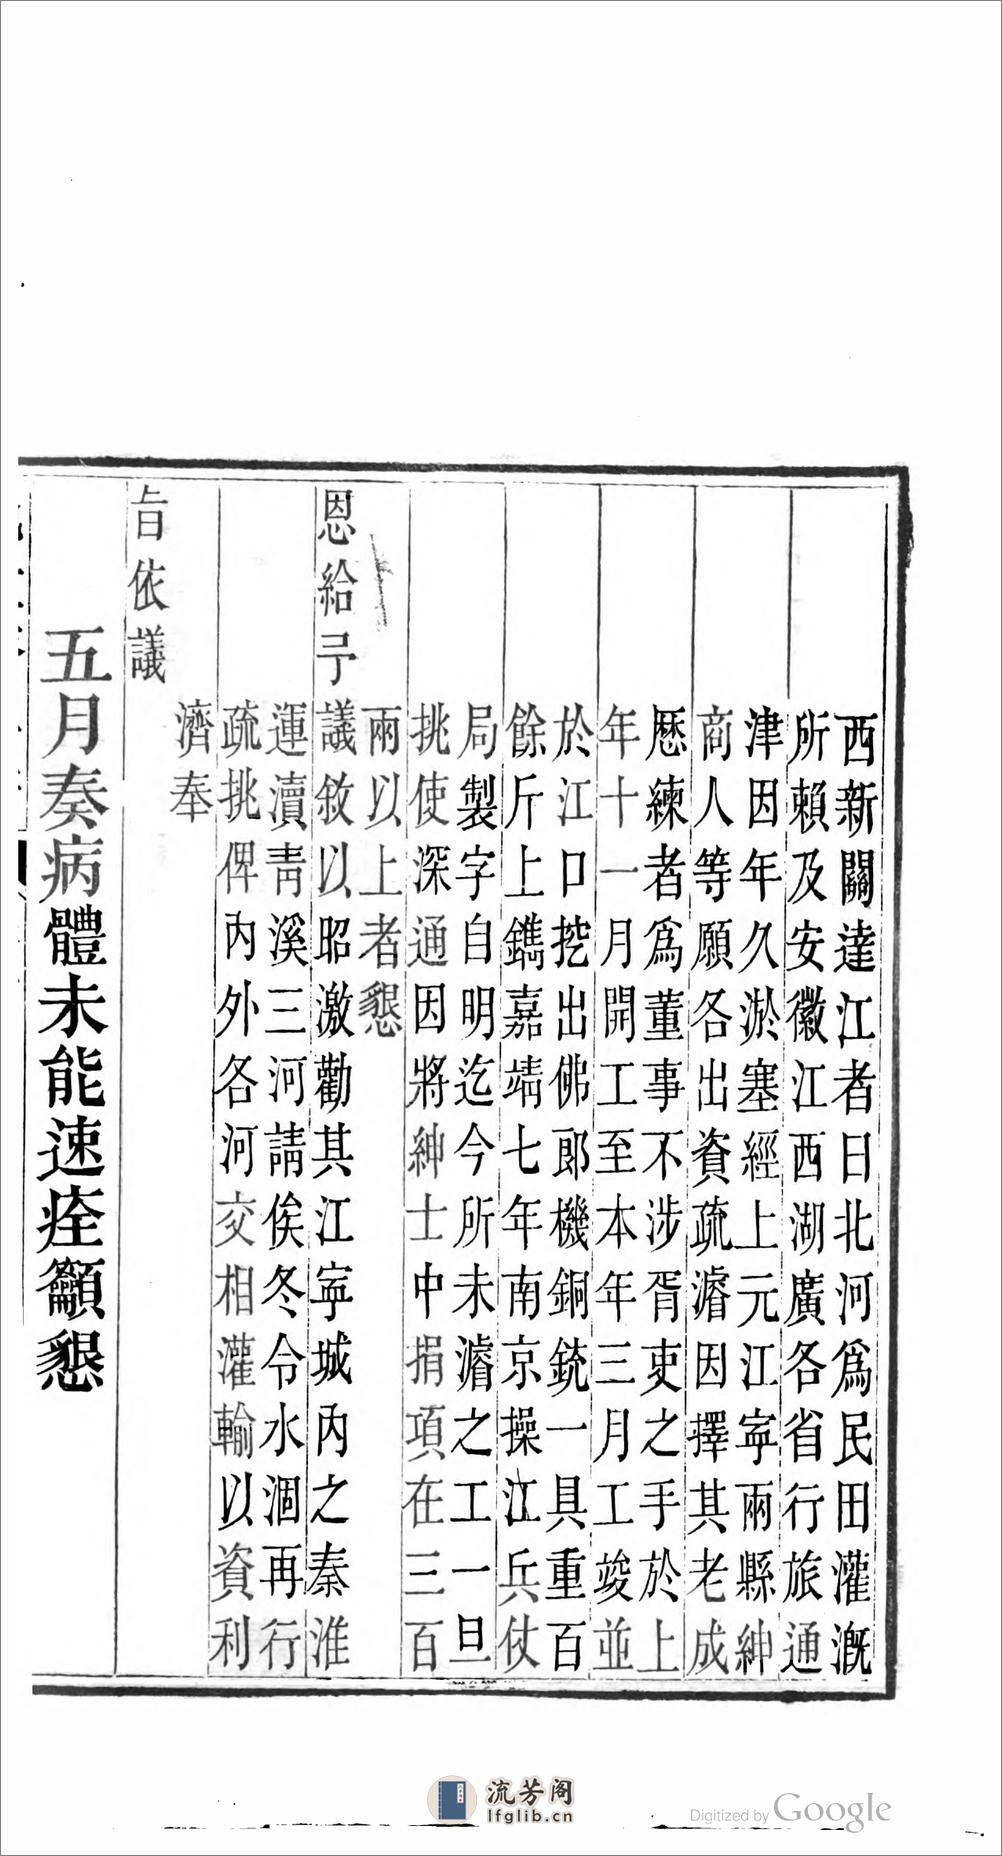 西新關達江者曰北河爲民田灌漑
所賴及安徽江西湖廣各省行旅通
津因年久淤塞經上元江寧兩縣紳
商人等願各出資疏濬因擇其老成
歷練者爲董事不涉胥吏之手於上
年十一月開工至本年三月工竣並
於江口挖出佛郎機銅銃一具重百
餘斤上鐫嘉靖七年南京操江兵仗
局製字自明迄今所未濬之工一旦
挑使深通因將紳士中捐項在三百
兩以上者懇
恩給予議敘以昭激勸其江寧城內之秦淮
運瀆靑溪三河請俟冬令水涸再行
疏挑俾內外各河交相灌輸以資利
濟奉
旨依議
五月奏病體未能速痊籲懇
流芳阁
lfglib.cn
Digitized by Google